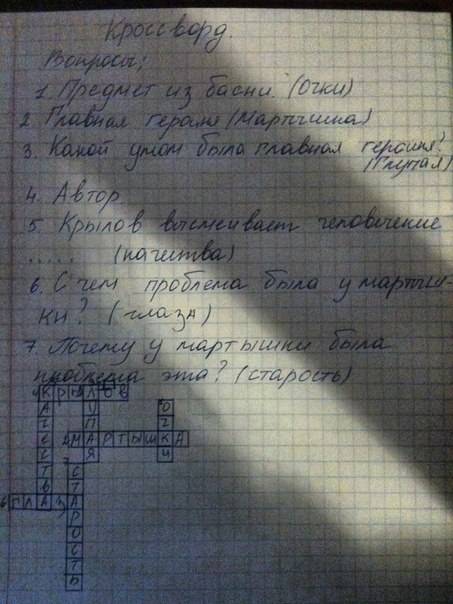 Кроссворд.
Вопросы:
1. Предмет из басни. (Очки)
2. Главная героиня (Мартышка)
3. Какой умом была главная героиня?
(Глупая)
4. Автор
5. Крылов высмеивает человечение
..... (качества)
6. С чем проблема была у мартыш-
ки? (глаза)
7. Почему у мартышки была
проблема эта? (старость)
4 КРЫЛОВ
КАЧЕСТВА
ГЛУПАЯ
ОЧКИ
2 МАРТЫШКА
6 ГЛАЗА
СТАРОСТЬ